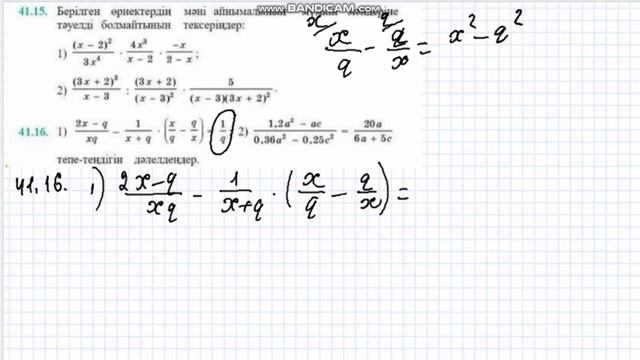 WWW.BANDICAM.COM
41.15. Берілген өрнектердің мәні айнымалының мәндеріне
тәуелді болмайтынын тексеріңдер:
1) (x − 2)²/3x⁴ · 4x³/(x − 2) · −x/(2 − x);
2) (3x + 2)³/(x − 3) : (3x + 2)/(x − 3)² · 5/((x − 3)(3x + 2)²).
41.16. 1) (2x − q)/xq − 1/(x + q) · (x/q − q/x) = 1/q 2) (1,2a² − ac)/(0,36a² − 0,25c²) = 20a/(6a + 5c)
тепе-теңдігін дәлелдеңдер.
x/q − q/x = x² − q²
41.16. 1) (2x−q)/xq − 1/(x+q) · (x/q − q/x) =